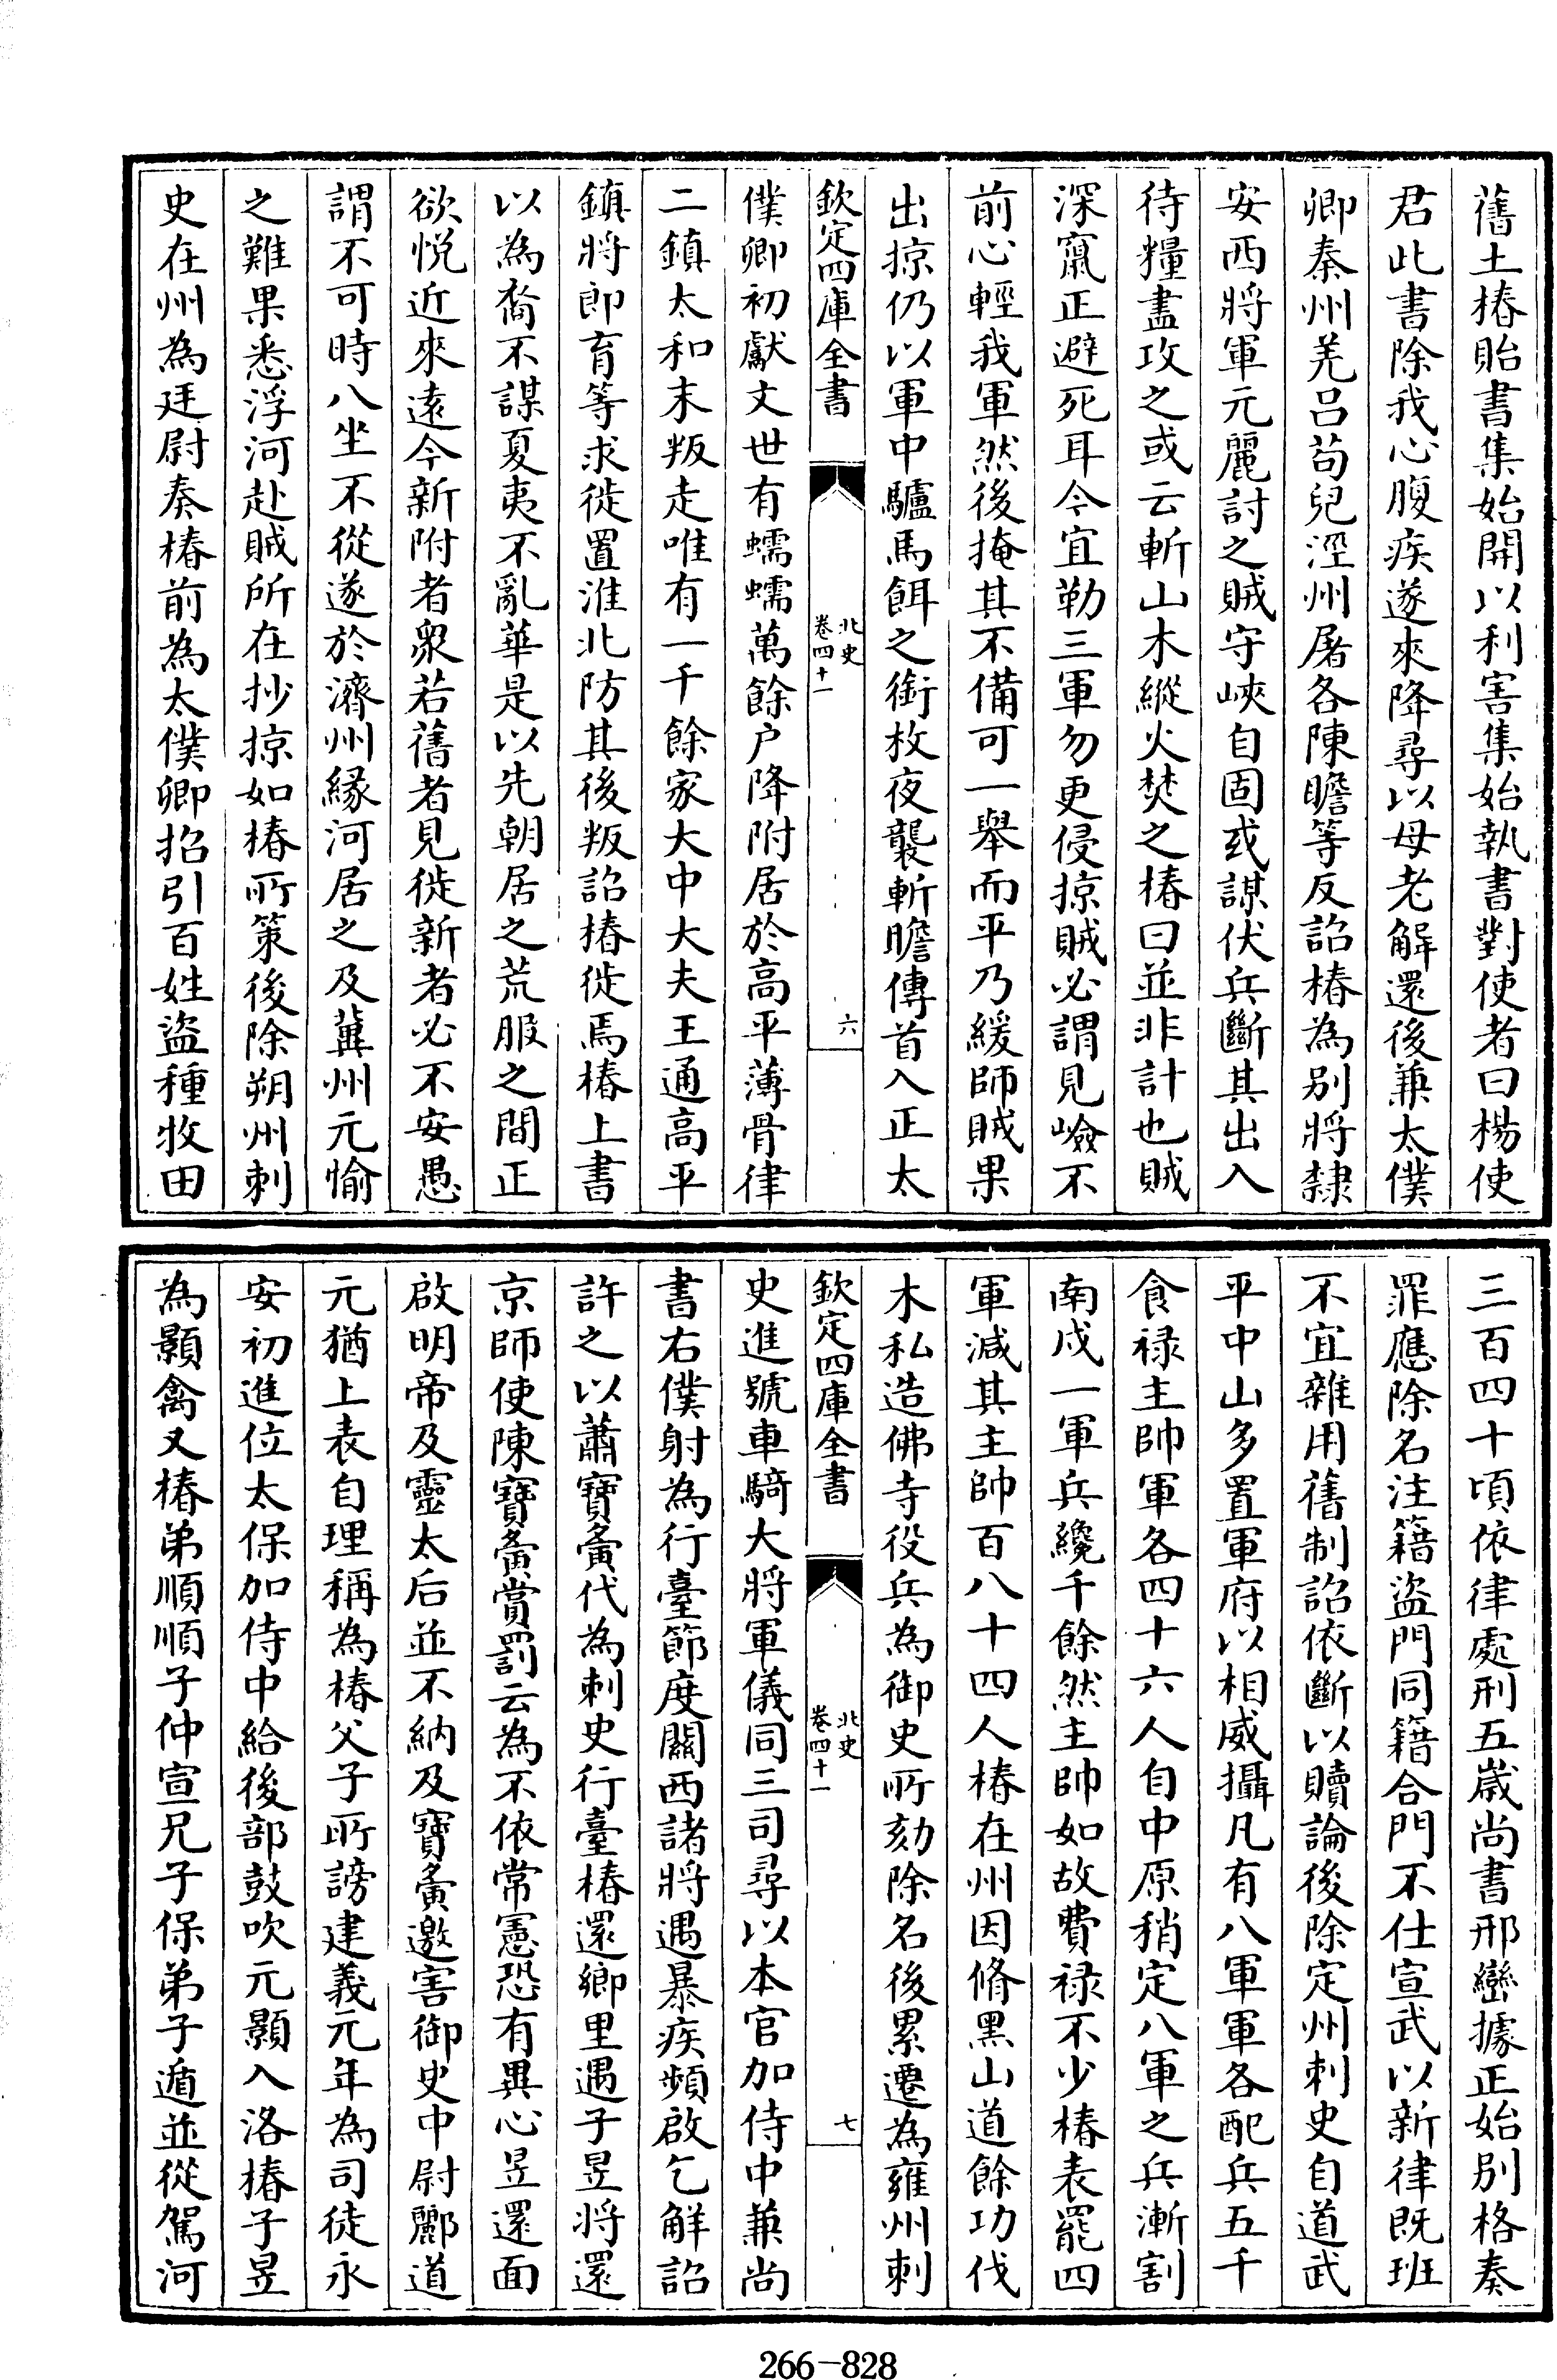 舊土椿貽書集始開以利害集始執書對使者曰楊使
君此書除我心腹疾遂來降尋以母老解還後兼太僕
卿秦州羌呂苟兒涇州屠各陳瞻等反詔椿為别將隸
安西將軍元麗討之賊守峽自固或謀伏兵斷其出入
待糧盡攻之或云斬山木縱火焚之椿曰並非計也賊
深竄正避死耳今宜勒三軍勿更侵掠賊必謂見嶮不
前心輕我軍然後掩其不備可一舉而平乃緩師賊果
出掠仍以軍中驢馬餌之銜枚夜襲斬瞻傳首入正太
欽定四庫全書
北史
卷四十一
六
僕卿初獻文世有蠕蠕萬餘户降附居於高平薄骨律
二鎮太和末叛走唯有一千餘家大中大夫王通高平
鎮將郎育等求徙置淮北防其後叛詔椿徙焉椿上書
以為裔不謀夏夷不亂華是以先朝居之荒服之間正
欲悦近來遠今新附者衆若舊者見徙新者必不安愚
謂不可時八坐不從遂於濟州縁河居之及冀州元愉
之難果悉浮河赴賊所在抄掠如椿所策後除朔州刺
史在州為廷尉奏椿前為太僕卿招引百姓盜種牧田
三百四十頃依律處刑五嵗尚書邢巒據正始别格奏
罪應除名注籍盜門同籍合門不仕宣武以新律既班
不宜雜用舊制詔依斷以贖論後除定州刺史自道武
平中山多置軍府以相威攝凡有八軍軍各配兵五千
食禄主帥軍各四十六人自中原稍定八軍之兵漸割
南戍一軍兵纔千餘然主帥如故費禄不少椿表罷四
軍減其主帥百八十四人椿在州因脩黑山道餘功伐
木私造佛寺役兵為御史所劾除名後累遷為雍州刺
欽定四庫全書
北史
卷四十一
七
史進號車騎大將軍儀同三司尋以本官加侍中兼尚
書右僕射為行臺節度關西諸將遇暴疾頻啟乞解詔
許之以蕭寶夤代為刺史行臺椿還鄉里遇子昱將還
京師使陳寶夤賞罰云為不依常憲恐有異心昱還面
啟明帝及靈太后並不納及寶夤邀害御史中尉酈道
元猶上表自理稱為椿父子所謗建義元年為司徒永
安初進位太保加侍中給後部鼓吹元顥入洛椿子昱
為顥禽又椿弟順順子仲宣兄子保弟子遁並從駕河
266-828